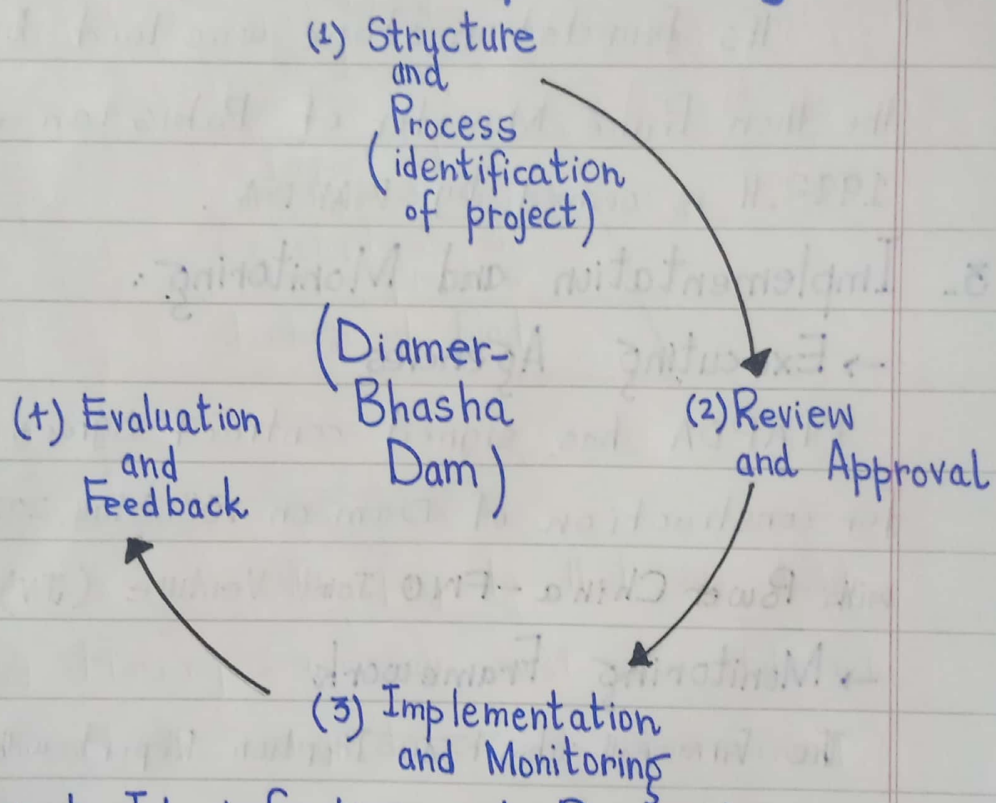 (1) Structure
and
Process
(identification
of project)
(Diamer-
Bhasha
Dam)
(2) Review
and Approval
(3) Implementation
and Monitoring
(4) Evaluation
and
Feedback